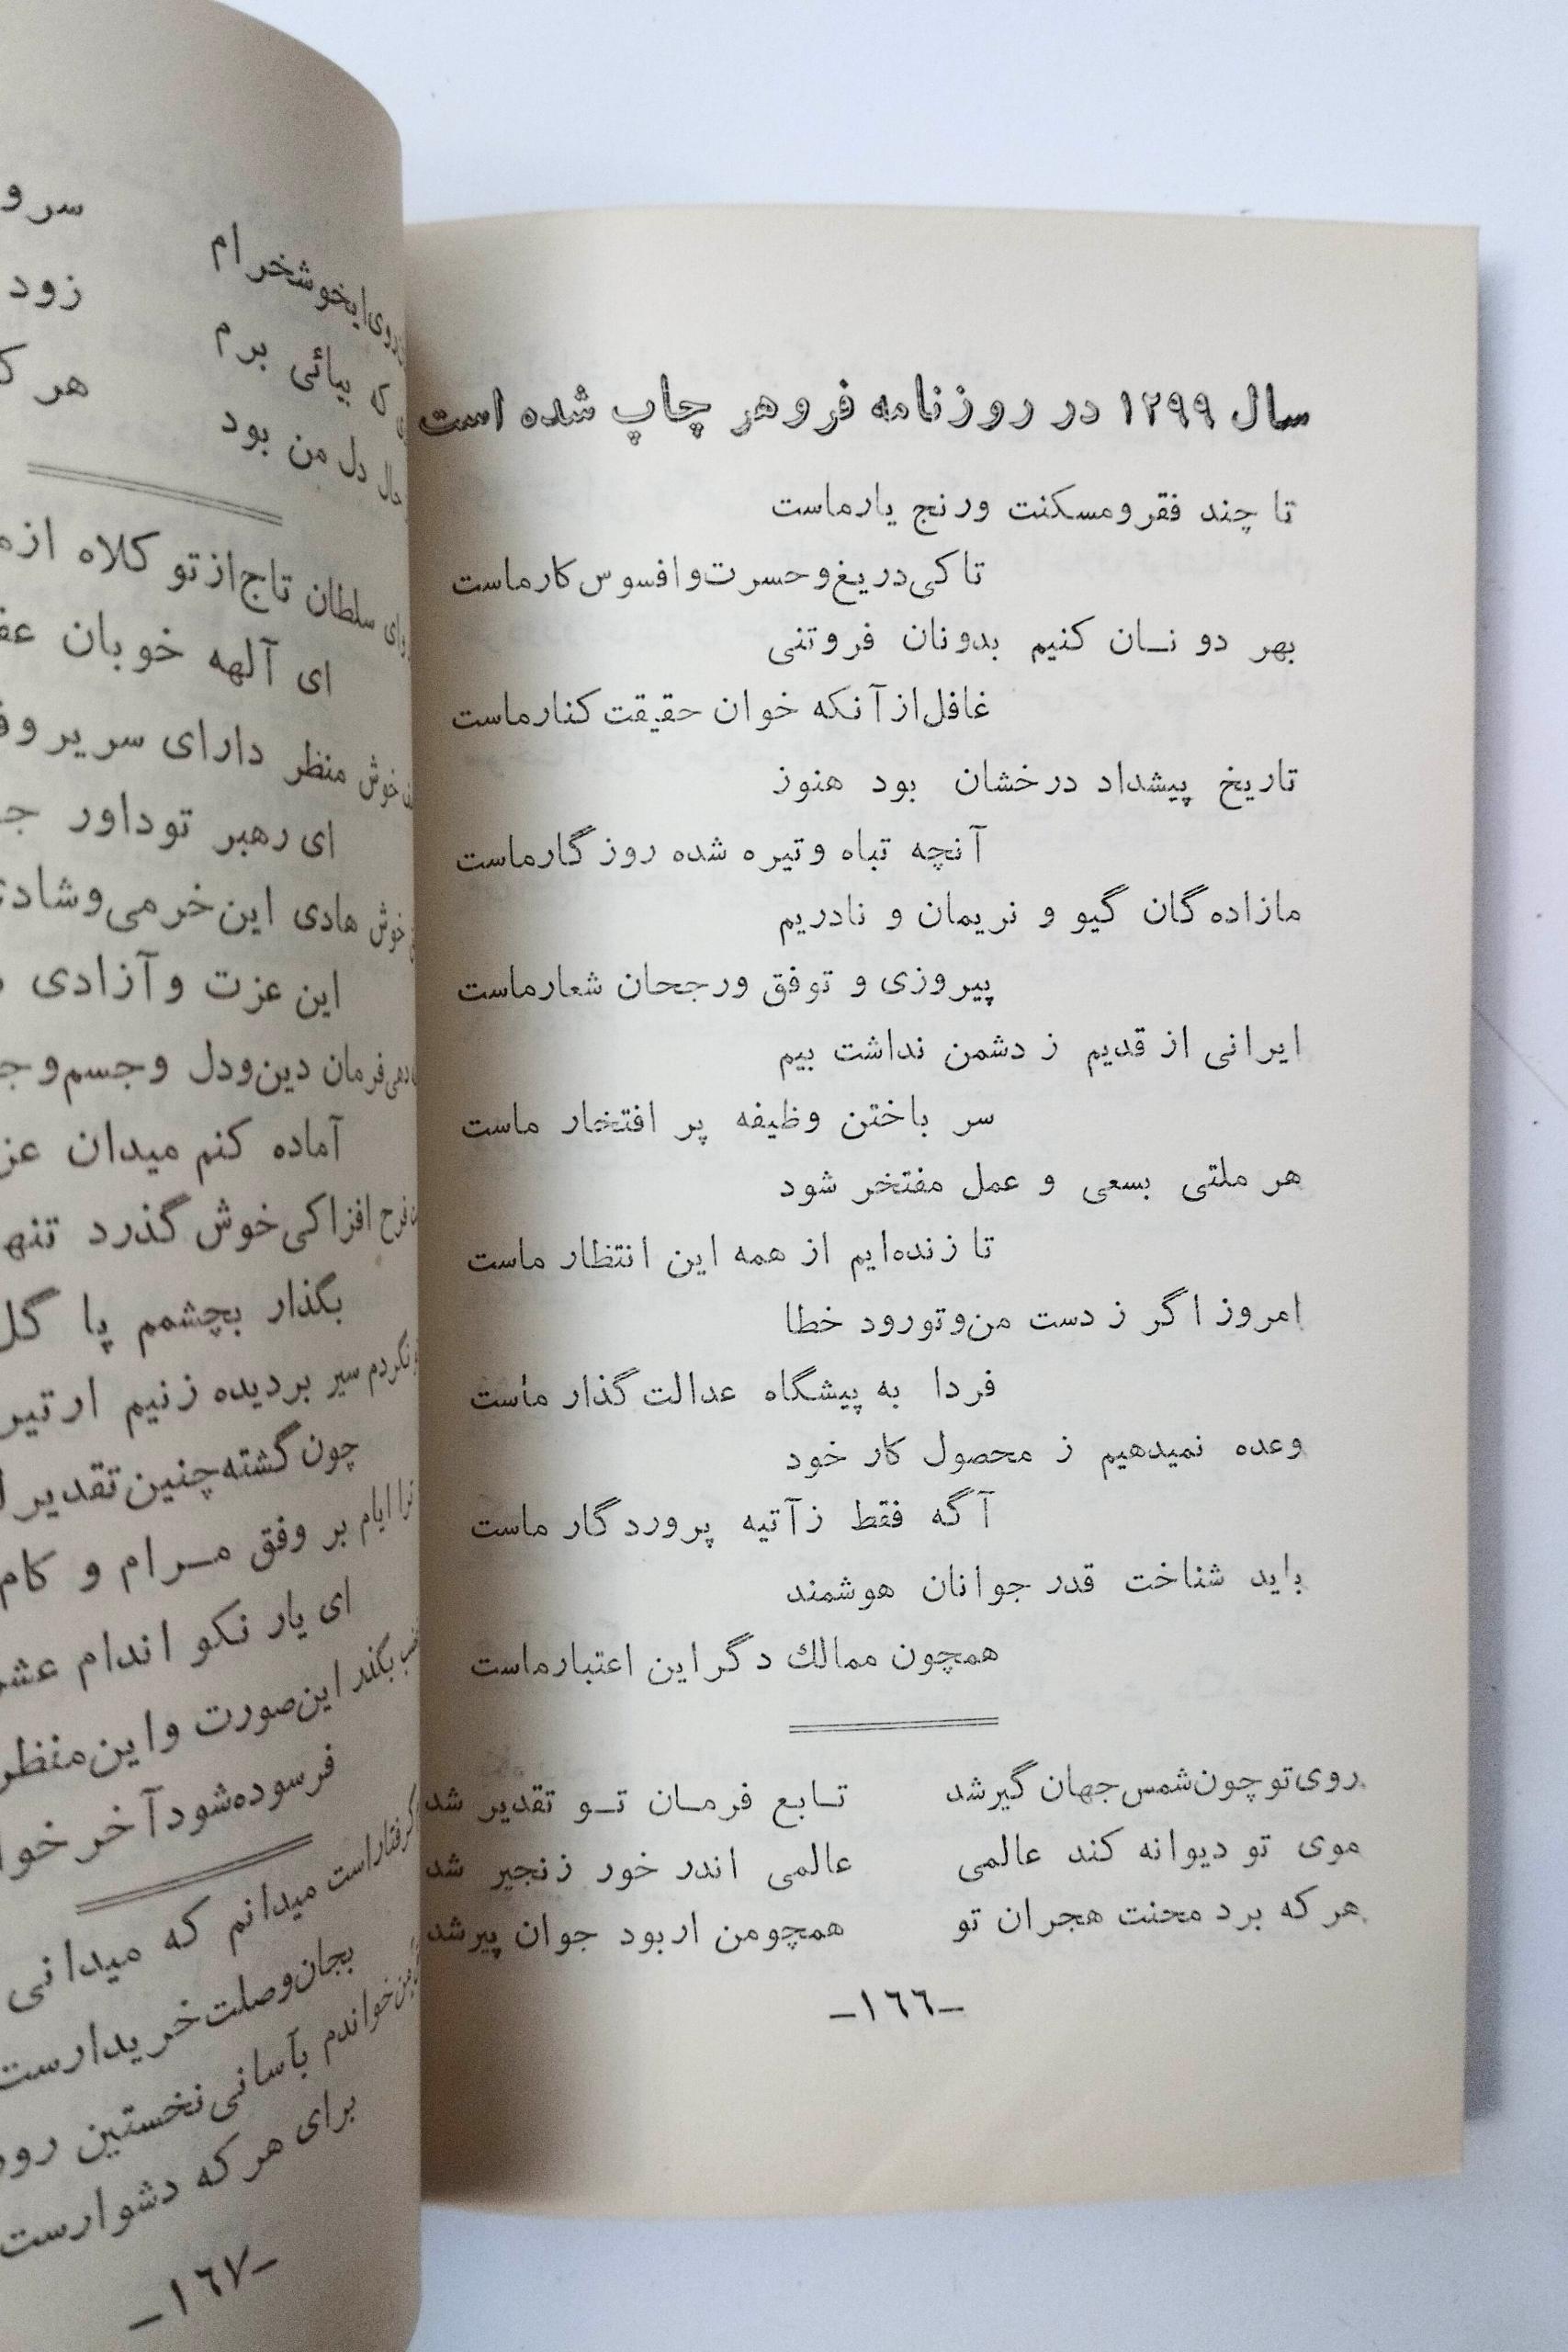 سال ۱۲۹۹ در روزنامه فروهر چاپ شده است
تا چند فقر ومسکنت ورنج یارماست
تا کی دریغ وحسرت وافسوس کارماست
بهر دو نــان کنیم بدونان فروتنی
غافل از آنکه خوان حقیقت کنارماست
تاریخ پیشداد درخشان بود هنوز
آنچه تباه وتیره شده روزگارماست
مازاده گان گیو و نریمان و نادریم
پیروزی و توفق ورجحان شعارماست
ایرانی از قدیم ز دشمن نداشت بیم
سر باختن وظیفه پر افتخار ماست
هر ملتی بسعی و عمل مفتخر شود
تا زنده‌ایم از همه این انتظار ماست
امروز اگر ز دست من‌وتو رود خطا
فردا به پیشگاه عدالت گذار ماست
وعده نمیدهیم ز محصول کار خود
آگه فقط ز آتیه پروردگار ماست
باید شناخت قدر جوانان هوشمند
همچون ممالك دگر این اعتبارماست
روی تو چون شمس جهان گیر شد تــابع فرمــان تــو تقدیر شد
موی تو دیوانه کند عالمی عالمی اندر خور زنجیر شد
هر که برد محنت هجران تو همچومن ار بود جوان پیرشد
ـ١٦٦ـ
ایخوشخرام سرو
بیائی برم زود
حال دل من بود هر
وای سلطان تاج از تو کلاه
ای آلهه خوبان
خوش منظر دارای سریر
ای رهبر توداور
خوش هادی این خرمی وشادی
این عزت وآزادی
فرمان دین‌ودل وجسم‌و
آماده کنم میدان
فرح افزا کی خوش گذرد
بگذار بچشمم پا
نکردم سیر بردیده زنیم ارتیر
چون گشته چنین تقدیر
ترا ایام بر وفق مــرام و کام
ای یار نکو اندام
بگذر این صورت واین منظر
فرسوده شود آخر
گرفتار است میدانم که میدانی
بجان وصلت خریدارست
خواندم بآسانی نخستین
برای هر که دشوارست
ـ١٦٧ـ